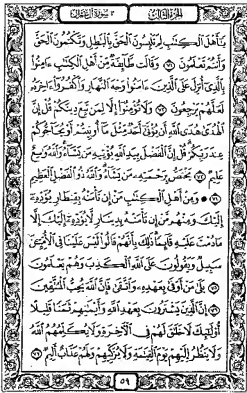 الجزء الثالث ٣ سورة آل عمران
يَٰٓأَهْلَ ٱلْكِتَٰبِ لِمَ تَلْبِسُونَ ٱلْحَقَّ بِٱلْبَٰطِلِ وَتَكْتُمُونَ ٱلْحَقَّ
وَأَنتُمْ تَعْلَمُونَ ٧١ وَقَالَت طَّآئِفَةٌ مِّنْ أَهْلِ ٱلْكِتَٰبِ ءَامِنُوا۟
بِٱلَّذِىٓ أُنزِلَ عَلَى ٱلَّذِينَ ءَامَنُوا۟ وَجْهَ ٱلنَّهَارِ وَٱكْفُرُوٓا۟ ءَاخِرَهُۥ
لَعَلَّهُمْ يَرْجِعُونَ ٧٢ وَلَا تُؤْمِنُوٓا۟ إِلَّا لِمَن تَبِعَ دِينَكُمْ قُلْ إِنَّ
ٱلْهُدَىٰ هُدَى ٱللَّهِ أَن يُؤْتَىٰٓ أَحَدٌ مِّثْلَ مَآ أُوتِيتُمْ أَوْ يُحَآجُّوكُمْ
عِندَ رَبِّكُمْ قُلْ إِنَّ ٱلْفَضْلَ بِيَدِ ٱللَّهِ يُؤْتِيهِ مَن يَشَآءُ وَٱللَّهُ وَٰسِعٌ
عَلِيمٌ ٧٣ يَخْتَصُّ بِرَحْمَتِهِۦ مَن يَشَآءُ وَٱللَّهُ ذُو ٱلْفَضْلِ ٱلْعَظِيمِ
٧٤ وَمِنْ أَهْلِ ٱلْكِتَٰبِ مَنْ إِن تَأْمَنْهُ بِقِنطَارٍ يُؤَدِّهِۦٓ
إِلَيْكَ وَمِنْهُم مَّنْ إِن تَأْمَنْهُ بِدِينَارٍ لَّا يُؤَدِّهِۦٓ إِلَيْكَ إِلَّا
مَا دُمْتَ عَلَيْهِ قَآئِمًا ذَٰلِكَ بِأَنَّهُمْ قَالُوا۟ لَيْسَ عَلَيْنَا فِى ٱلْأُمِّيِّـۧنَ
سَبِيلٌ وَيَقُولُونَ عَلَى ٱللَّهِ ٱلْكَذِبَ وَهُمْ يَعْلَمُونَ
٧٥ بَلَىٰ مَنْ أَوْفَىٰ بِعَهْدِهِۦ وَٱتَّقَىٰ فَإِنَّ ٱللَّهَ يُحِبُّ ٱلْمُتَّقِينَ
٧٦ إِنَّ ٱلَّذِينَ يَشْتَرُونَ بِعَهْدِ ٱللَّهِ وَأَيْمَٰنِهِمْ ثَمَنًا قَلِيلًا
أُو۟لَٰٓئِكَ لَا خَلَٰقَ لَهُمْ فِى ٱلْءَاخِرَةِ وَلَا يُكَلِّمُهُمُ ٱللَّهُ
وَلَا يَنظُرُ إِلَيْهِمْ يَوْمَ ٱلْقِيَٰمَةِ وَلَا يُزَكِّيهِمْ وَلَهُمْ عَذَابٌ أَلِيمٌ ٧٧
٥٩